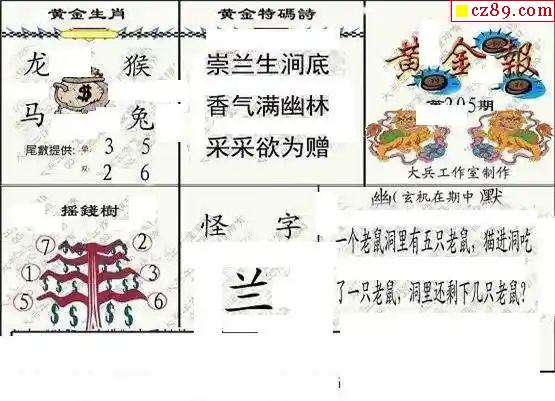 cz89.com
黄金生肖
龙 猴
马 兔
尾數提供: 单: 3 5
双: 2 6
黄金特碼詩
崇兰生涧底
香气满幽林
采采欲为赠
黄金報
第205期
大兵工作室制作
摇錢樹
⑦ ②
① ③
⑤ ⑥
怪 字
兰
幽(玄机在期中)默
一个老鼠洞里有五只老鼠，猫进洞吃
了一只老鼠，洞里还剩下几只老鼠？